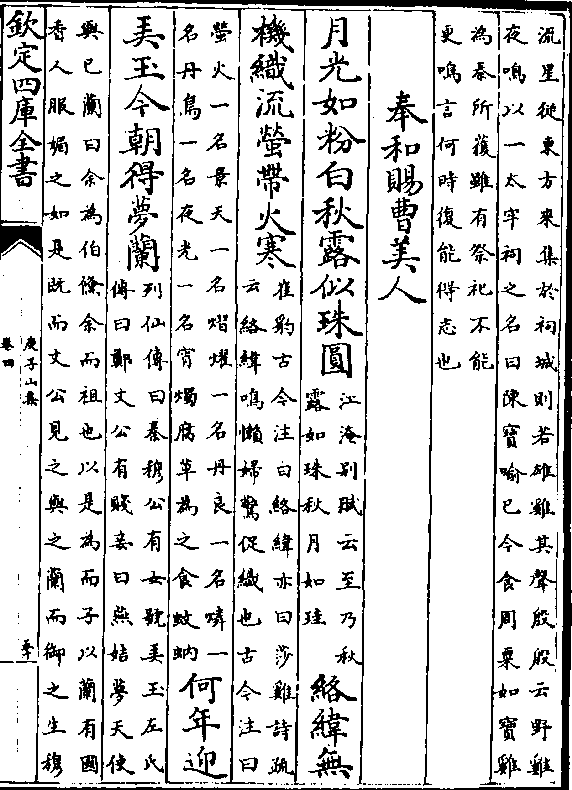 流星從東方來集於祠城則若雄雞其聲殷殷云野雞
夜鳴以一太牢祠之名曰陳寶喻已今食周粟如寶雞
為秦所獲雖有祭祀不能
更鳴言何時復能得志也
奉和賜曹美人
月光如粉白秋露似珠圓
江淹别賦云至乃秋
露如珠秋月如珪
絡緯無
機織流螢帶火寒
崔豹古今注曰絡緯亦曰莎雞詩疏
云絡緯鳴懶婦驚促織也古今注曰
螢火一名景天一名熠燿一名丹良一名燐一
名丹鳥一名夜光一名宵燭腐草為之食蚊蚋
何年迎
美玉今朝得夢蘭
列仙傳曰秦穆公有女號美玉左氏
傳曰鄭文公有賤妾曰燕姞夢天使
與已蘭曰余為伯鯈余而祖也以是為而子以蘭有國
香人服媚之如是既而文公見之與之蘭而御之生穆
欽定四庫全書
庾子山集
卷四